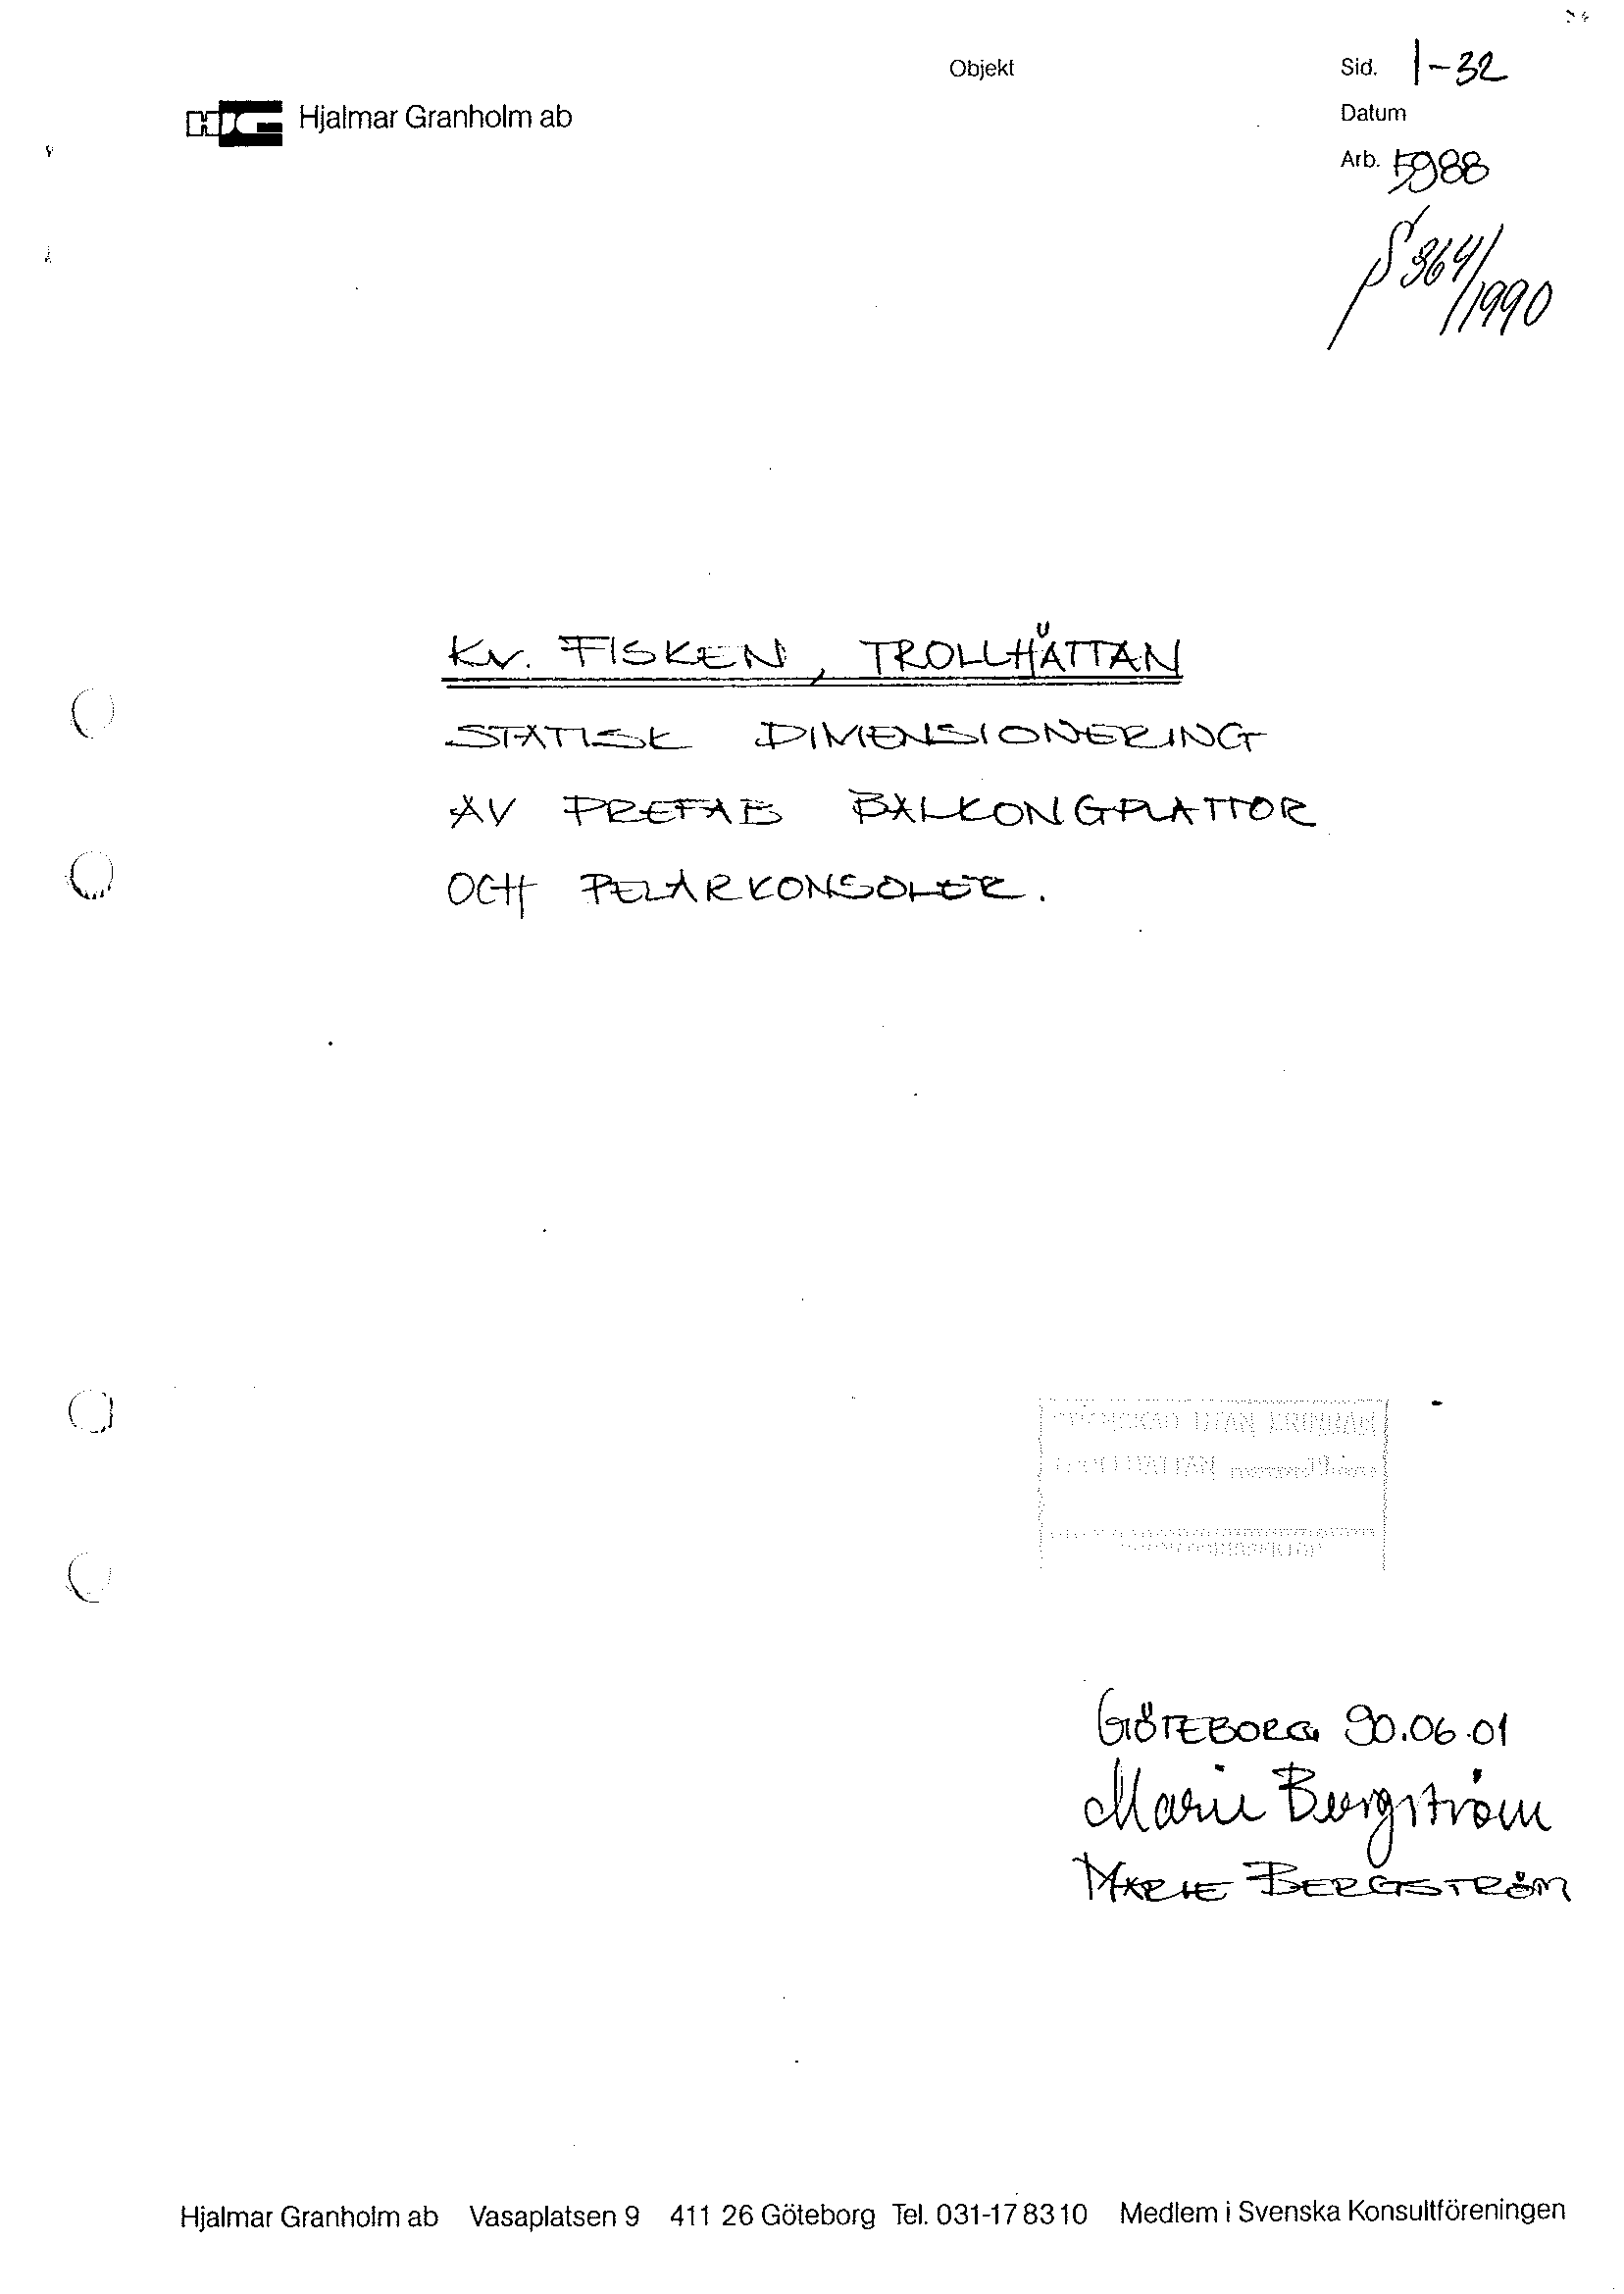 Objekt
Sid. 1-32
HJG Hjalmar Granholm ab
Datum
Arb. 5988
§ 364/1990
KV. FISKEN, TROLLHÄTTAN
STATISK DIMENSIONERING
AV PREFAB BALKONGPLATTOR
OCH PELARKONSOLER.
UTAN ERINRAN
TROLLHÄTTAN
GÖTEBORG 90.06.01
Marie Bergström
MARIE BERGSTRÖM
Hjalmar Granholm ab Vasaplatsen 9 411 26 Göteborg Tel. 031-17 83 10 Medlem i Svenska Konsultföreningen